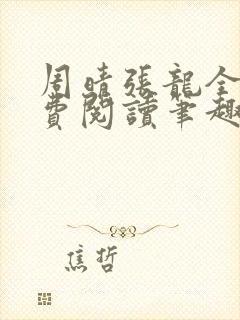 周晴張龍全
費閱讀筆趣
焦哲